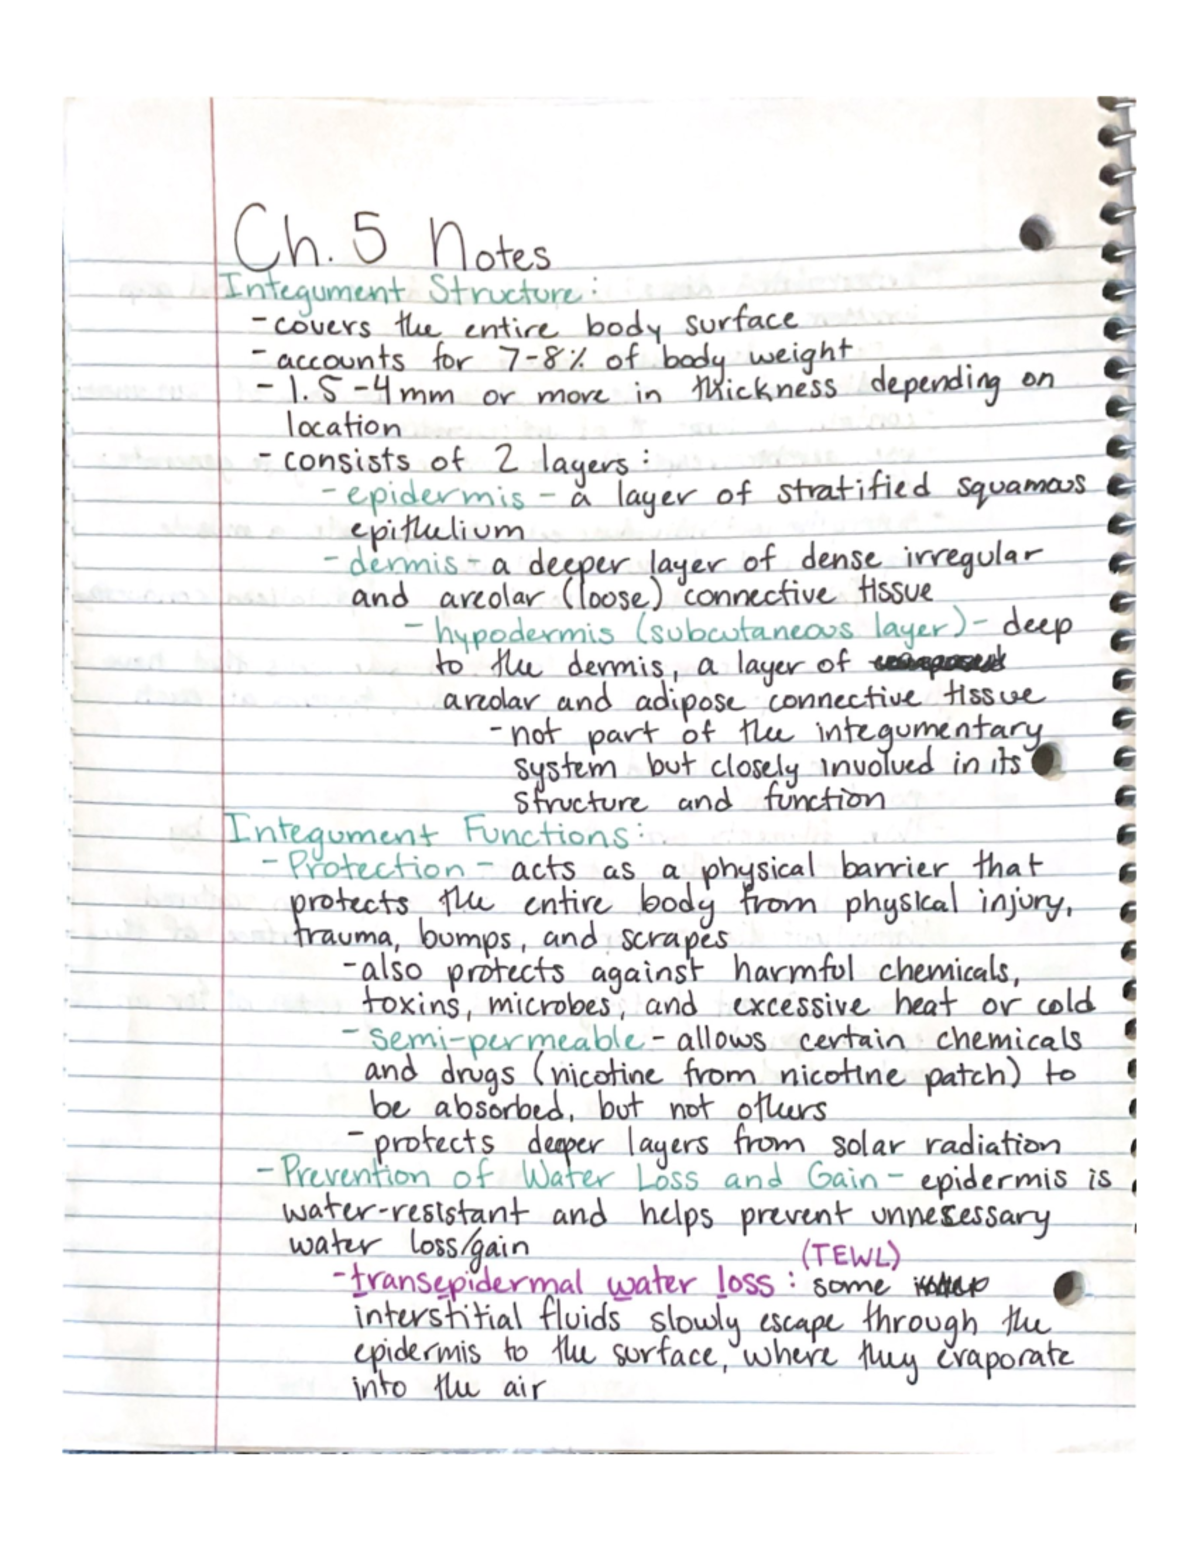 Ch. 5 Notes
Integument Structure:
- covers the entire body surface
- accounts for 7-8% of body weight
- 1.5-4mm or more in thickness depending on
location
- consists of 2 layers:
- epidermis - a layer of stratified squamous
epithelium
- dermis - a deeper layer of dense irregular
and areolar (loose) connective tissue
- hypodermis (subcutaneous layer) - deep
to the dermis, a layer of
areolar and adipose connective tissue
- not part of the integumentary
system but closely involved in its
structure and function
Integument Functions:
- Protection - acts as a physical barrier that
protects the entire body from physical injury,
trauma, bumps, and scrapes
- also protects against harmful chemicals,
toxins, microbes, and excessive heat or cold
- semi-permeable - allows certain chemicals
and drugs (nicotine from nicotine patch) to
be absorbed, but not others
- protects deeper layers from solar radiation
- Prevention of Water Loss and Gain - epidermis is
water-resistant and helps prevent unnecessary
water loss/gain
(TEWL)
- transepidermal water loss: some
interstitial fluids slowly escape through the
epidermis to the surface, where they evaporate
into the air